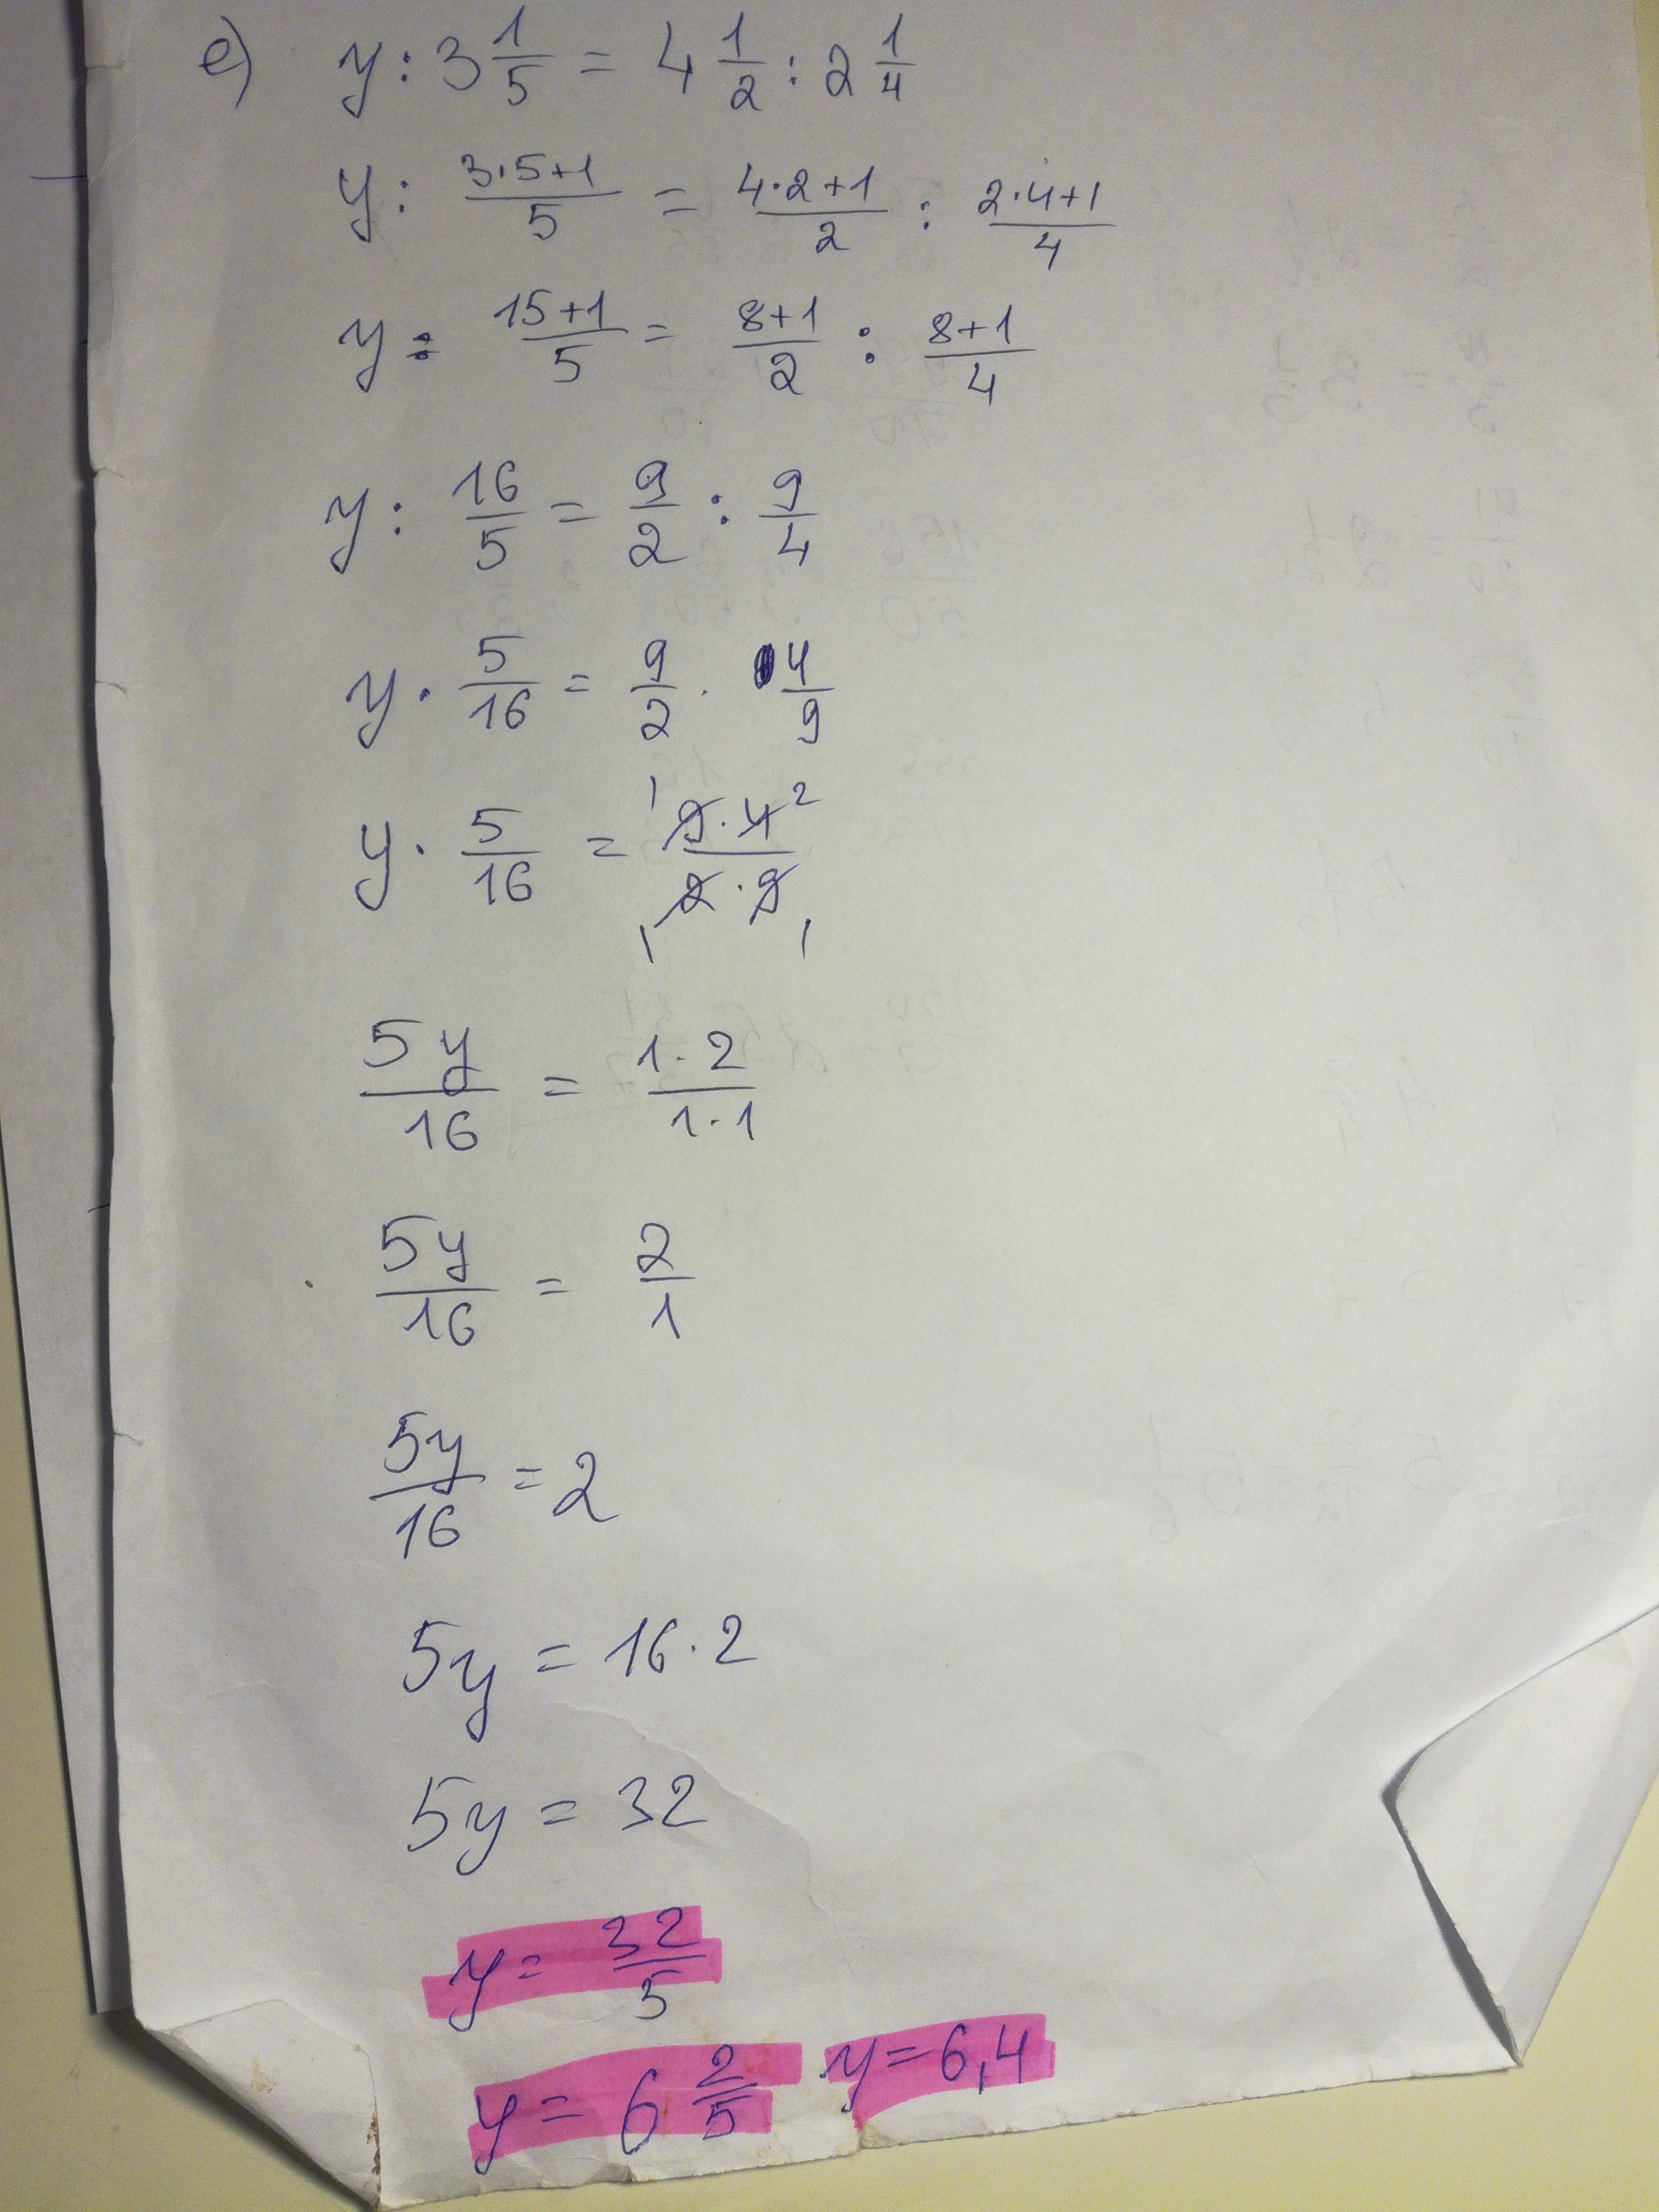 e) y : 3 1/5 = 4 1/2 : 2 1/4
y : 3·5+1/5 = 4·2+1/2 : 2·4+1/4
y : 15+1/5 = 8+1/2 : 8+1/4
y : 16/5 = 9/2 : 9/4
y · 5/16 = 9/2 · 4/9
y · 5/16 = 1 9·4 2 / 1 2·9 1
5y/16 = 1·2/1·1
5y/16 = 2/1
5y/16 = 2
5y = 16·2
5y = 32
y = 32/5
y = 6 2/5 y = 6,4